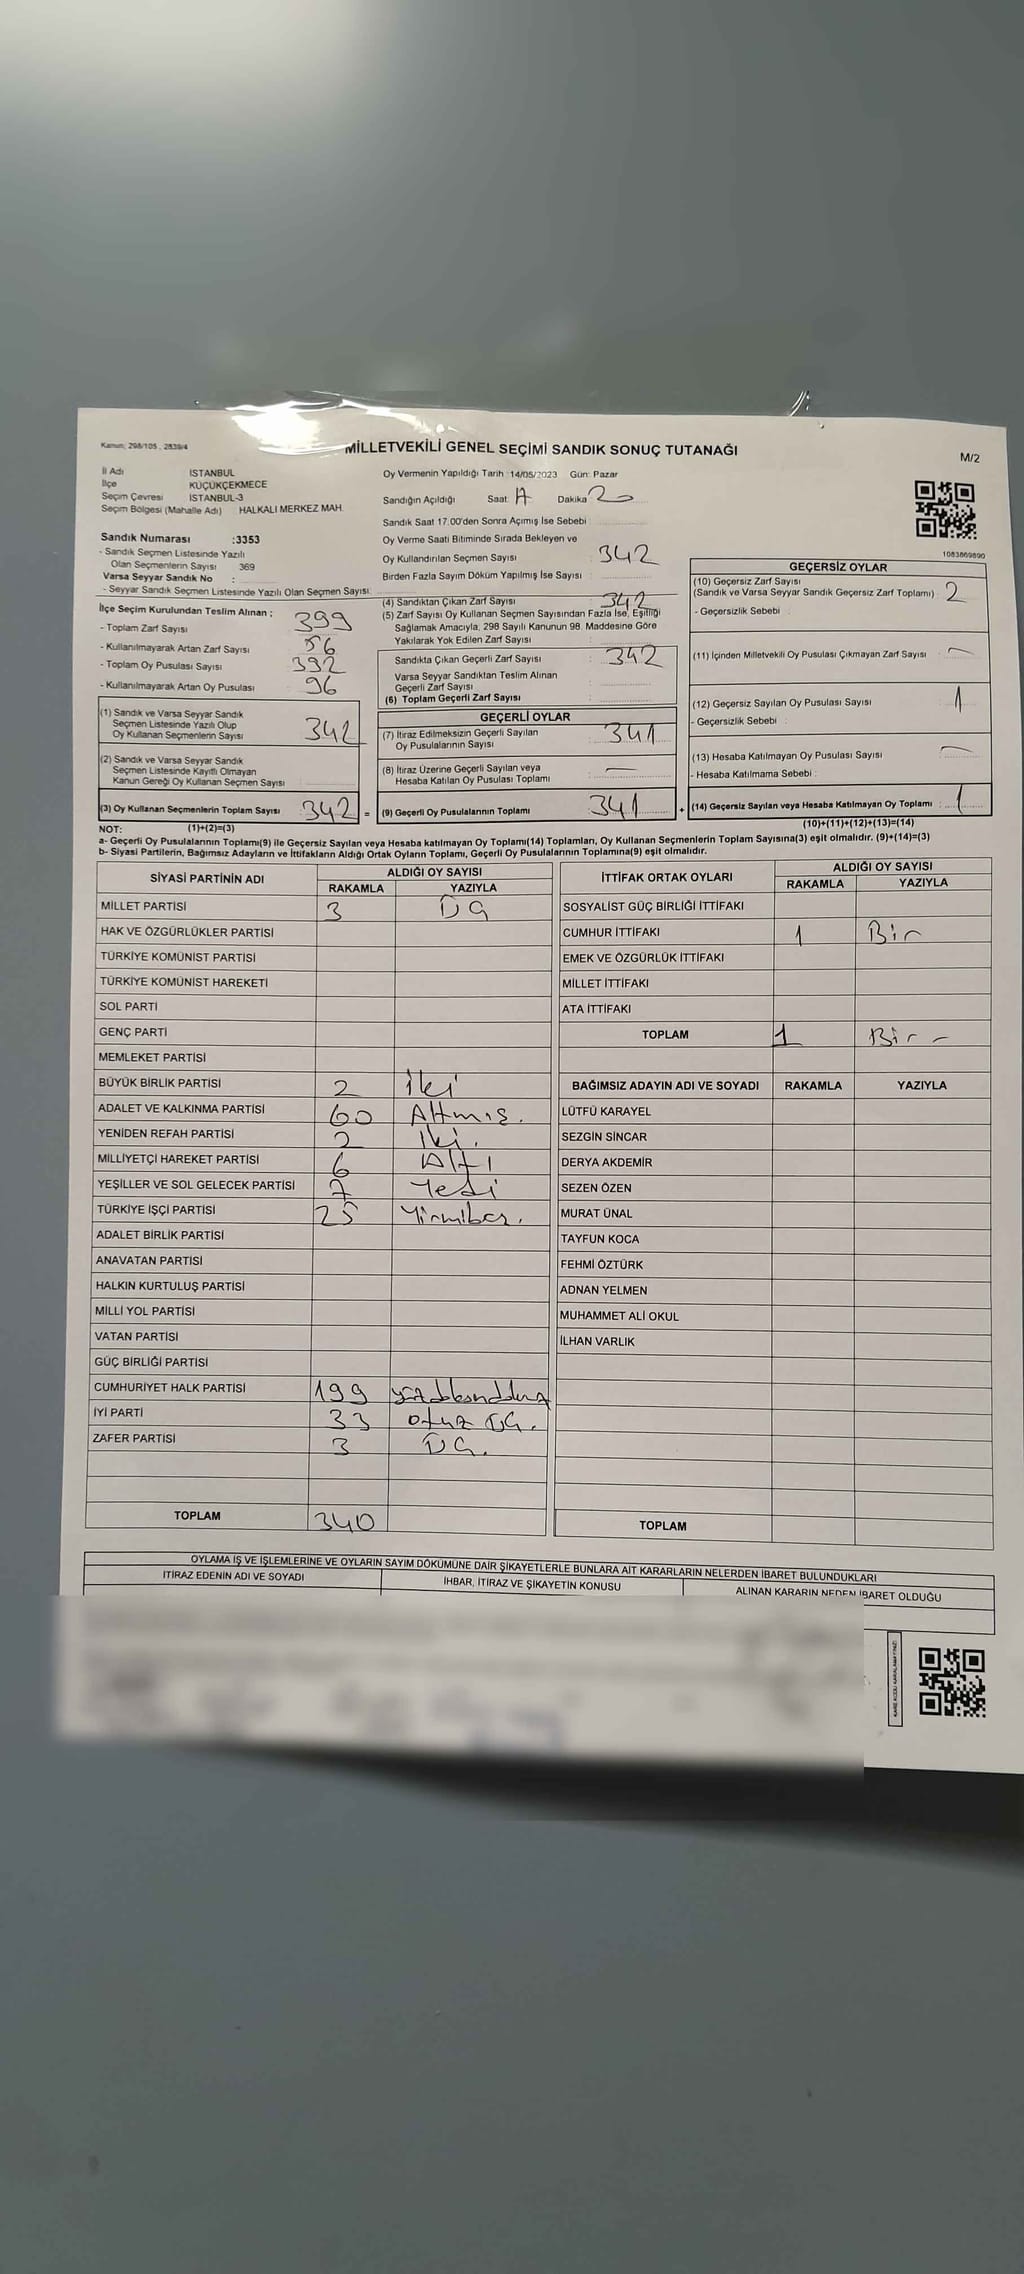 Kanun; 298/105 , 2839/4
MİLLETVEKİLİ GENEL SEÇİMİ SANDIK SONUÇ TUTANAĞI
M/2
İl Adı İSTANBUL
İlçe KÜÇÜKÇEKMECE
Seçim Çevresi İSTANBUL-3
Seçim Bölgesi (Mahalle Adı) : HALKALI MERKEZ MAH.
Sandık Numarası :3353
- Sandık Seçmen Listesinde Yazılı
Olan Seçmenlerin Sayısı 369
Varsa Seyyar Sandık No :
- Seyyar Sandık Seçmen Listesinde Yazılı Olan Seçmen Sayısı:
Oy Vermenin Yapıldığı Tarih :14/05/2023 Gün: Pazar
Sandığın Açıldığı Saat: Dakika:
Sandık Saat 17:00'den Sonra Açımış İse Sebebi :
Oy Verme Saati Bitiminde Sırada Bekleyen ve
Oy Kullandırılan Seçmen Sayısı : 342
Birden Fazla Sayım Döküm Yapılmış İse Sayısı :
1083869890
İlçe Seçim Kurulundan Teslim Alınan ;
- Toplam Zarf Sayısı 399
- Kullanılmayarak Artan Zarf Sayısı 56
- Toplam Oy Pusulası Sayısı 392
- Kullanılmayarak Artan Oy Pusulası 96
(1) Sandık ve Varsa Seyyar Sandık
Seçmen Listesinde Yazılı Olup
Oy Kullanan Seçmenlerin Sayısı 342
(2) Sandık ve Varsa Seyyar Sandık
Seçmen Listesinde Kayıtlı Olmayan
Kanun Gereği Oy Kullanan Seçmen Sayısı
(3) Oy Kullanan Seçmenlerin Toplam Sayısı 342 =
NOT: (1)+(2)=(3)
(4) Sandıktan Çıkan Zarf Sayısı : 342
(5) Zarf Sayısı Oy Kullanan Seçmen Sayısından Fazla İse, Eşitliği
Sağlamak Amacıyla, 298 Sayılı Kanunun 98. Maddesine Göre
Yakılarak Yok Edilen Zarf Sayısı :
Sandıkta Çıkan Geçerli Zarf Sayısı : 342
Varsa Seyyar Sandıktan Teslim Alınan
Geçerli Zarf Sayısı :
(6) Toplam Geçerli Zarf Sayısı :
GEÇERLİ OYLAR
(7) İtiraz Edilmeksizin Geçerli Sayılan
Oy Pusulalarının Sayısı : 341
(8) İtiraz Üzerine Geçerli Sayılan veya
Hesaba Katılan Oy Pusulası Toplamı : —
(9) Geçerli Oy Pusulalarının Toplamı : 341 +
GEÇERSİZ OYLAR
(10) Geçersiz Zarf Sayısı
(Sandık ve Varsa Seyyar Sandık Geçersiz Zarf Toplamı) : 2
- Geçersizlik Sebebi :
(11) İçinden Milletvekili Oy Pusulası Çıkmayan Zarf Sayısı : —
(12) Geçersiz Sayılan Oy Pusulası Sayısı : 1
- Geçersizlik Sebebi :
(13) Hesaba Katılmayan Oy Pusulası Sayısı : —
- Hesaba Katılmama Sebebi :
(14) Geçersiz Sayılan veya Hesaba Katılmayan Oy Toplamı : 1
(10)+(11)+(12)+(13)=(14)
a- Geçerli Oy Pusulalarının Toplamı(9) ile Geçersiz Sayılan veya Hesaba katılmayan Oy Toplamı(14) Toplamları, Oy Kullanan Seçmenlerin Toplam Sayısına(3) eşit olmalıdır. (9)+(14)=(3)
b- Siyasi Partilerin, Bağımsız Adayların ve İttifakların Aldığı Ortak Oyların Toplamı, Geçerli Oy Pusulalarının Toplamına(9) eşit olmalıdır.
SİYASİ PARTİNİN ADI ALDIĞI OY SAYISI
RAKAMLA YAZIYLA
MİLLET PARTİSİ 3 Üç
HAK VE ÖZGÜRLÜKLER PARTİSİ
TÜRKİYE KOMÜNİST PARTİSİ
TÜRKİYE KOMÜNİST HAREKETİ
SOL PARTİ
GENÇ PARTİ
MEMLEKET PARTİSİ
BÜYÜK BİRLİK PARTİSİ 2 İki
ADALET VE KALKINMA PARTİSİ 60 Altmış.
YENİDEN REFAH PARTİSİ 2 İki.
MİLLİYETÇİ HAREKET PARTİSİ 6 Altı
YEŞİLLER VE SOL GELECEK PARTİSİ 7 Yedi
TÜRKİYE İŞÇİ PARTİSİ 25 Yirmibeş.
ADALET BİRLİK PARTİSİ
ANAVATAN PARTİSİ
HALKIN KURTULUŞ PARTİSİ
MİLLİ YOL PARTİSİ
VATAN PARTİSİ
GÜÇ BİRLİĞİ PARTİSİ
CUMHURİYET HALK PARTİSİ 199 yüzdoksandokuz
İYİ PARTİ 33 otuz üç.
ZAFER PARTİSİ 3 Üç.
TOPLAM 340
İTTİFAK ORTAK OYLARI ALDIĞI OY SAYISI
RAKAMLA YAZIYLA
SOSYALİST GÜÇ BİRLİĞİ İTTİFAKI
CUMHUR İTTİFAKI 1 Bir
EMEK VE ÖZGÜRLÜK İTTİFAKI
MİLLET İTTİFAKI
ATA İTTİFAKI
TOPLAM 1 Bir -
BAĞIMSIZ ADAYIN ADI VE SOYADI RAKAMLA YAZIYLA
LÜTFÜ KARAYEL
SEZGİN SİNCAR
DERYA AKDEMİR
SEZEN ÖZEN
MURAT ÜNAL
TAYFUN KOCA
FEHMİ ÖZTÜRK
ADNAN YELMEN
MUHAMMET ALİ OKUL
İLHAN VARLIK
TOPLAM
OYLAMA İŞ VE İŞLEMLERİNE VE OYLARIN SAYIM DÖKÜMÜNE DAİR ŞİKAYETLERLE BUNLARA AİT KARARLARIN NELERDEN İBARET BULUNDUKLARI
İTİRAZ EDENİN ADI VE SOYADI İHBAR, İTİRAZ VE ŞİKAYETİN KONUSU ALINAN KARARIN NEDEN İBARET OLDUĞU